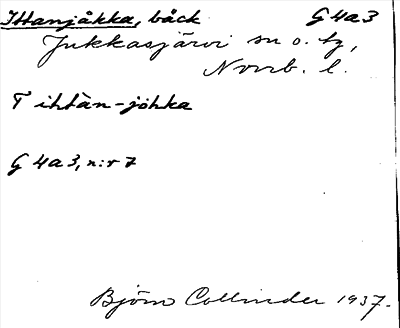 Ittanjåkka, bäck G 4a3
Jukkasjärvi sn o. tg,
Norrb. l.
T ihtàn-jȯhka
G 4a3, n:r 7
Björn Collinder 1937.